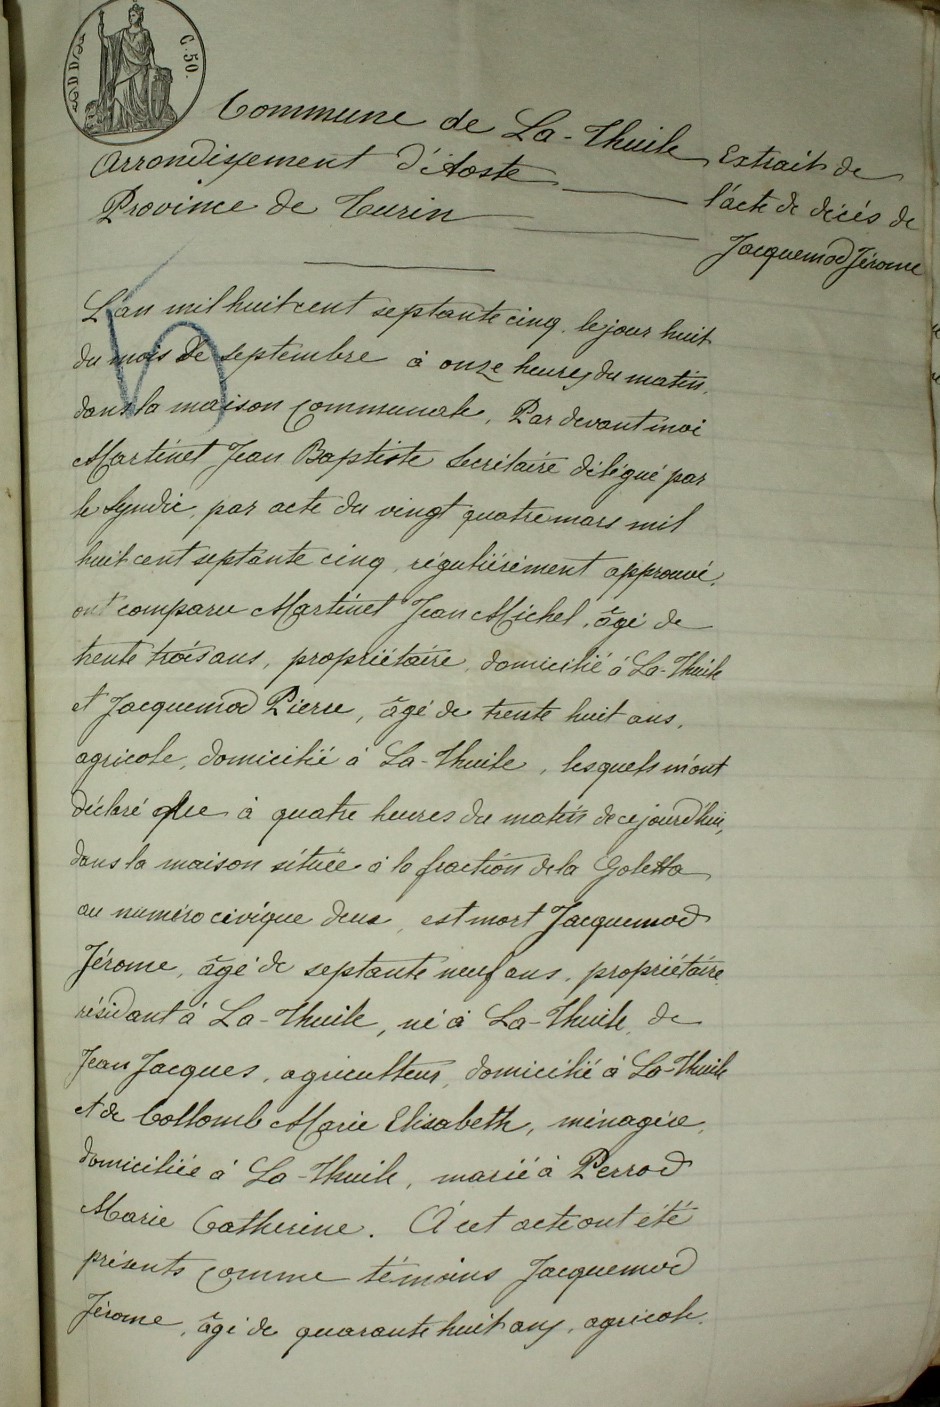 C. 50.
Commune de La-Thuile
Arrondissement d'Aoste
Province de Turin
Extrait de
l'acte de décés de
Jacquemod Jérome
L'an mil huit cent septante cinq, le jour huit
du mois de septembre à onze heures du matin,
dans la maison communale, Par devant moi
Martinet Jean Baptiste Secrétaire délégué par
le Syndic, par acte du vingt quatre mars mil
huit cent septante cinq, réguliérément approuvé,
ont comparu Martinet Jean Michel, âgé de
trente trois ans, propriétaire, domicilié à La-Thuile
et Jacquemod Pierre, âgé de trente huit ans,
agricole, domicilié à La-Thuile, lesquels m'ont
déclaré que à quatre heures du matin de ce jourd'hui,
dans la maison située à la fraction de la Goletta
au numéro civique deux, est mort Jacquemod
Jérome, âgé de septante neuf ans, propriétaire
résidant à La-Thuile, né à La-Thuile, de
Jean Jacques, agriculteur, domicilié à La-Thuile
et de Collomb Marie Elisabeth, ménagère,
domiciliée à La-Thuile, marié à Perrod
Marie Catherine. A cet acte ont été
présents comme témoins Jacquemod
Jérome, âgé de quarante huit ans, agricole,